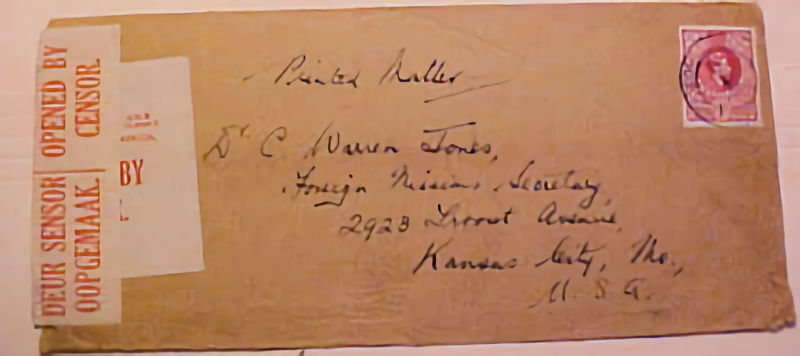 OPENED BY
CENSOR.
DEUR SENSOR
OOPGEMAAK.
BY
Printed Matter
Dr C. Warren Jones,
Foreign Missions Secretary,
2923 Troost Avenue,
Kansas City, Mo.,
U. S. A.